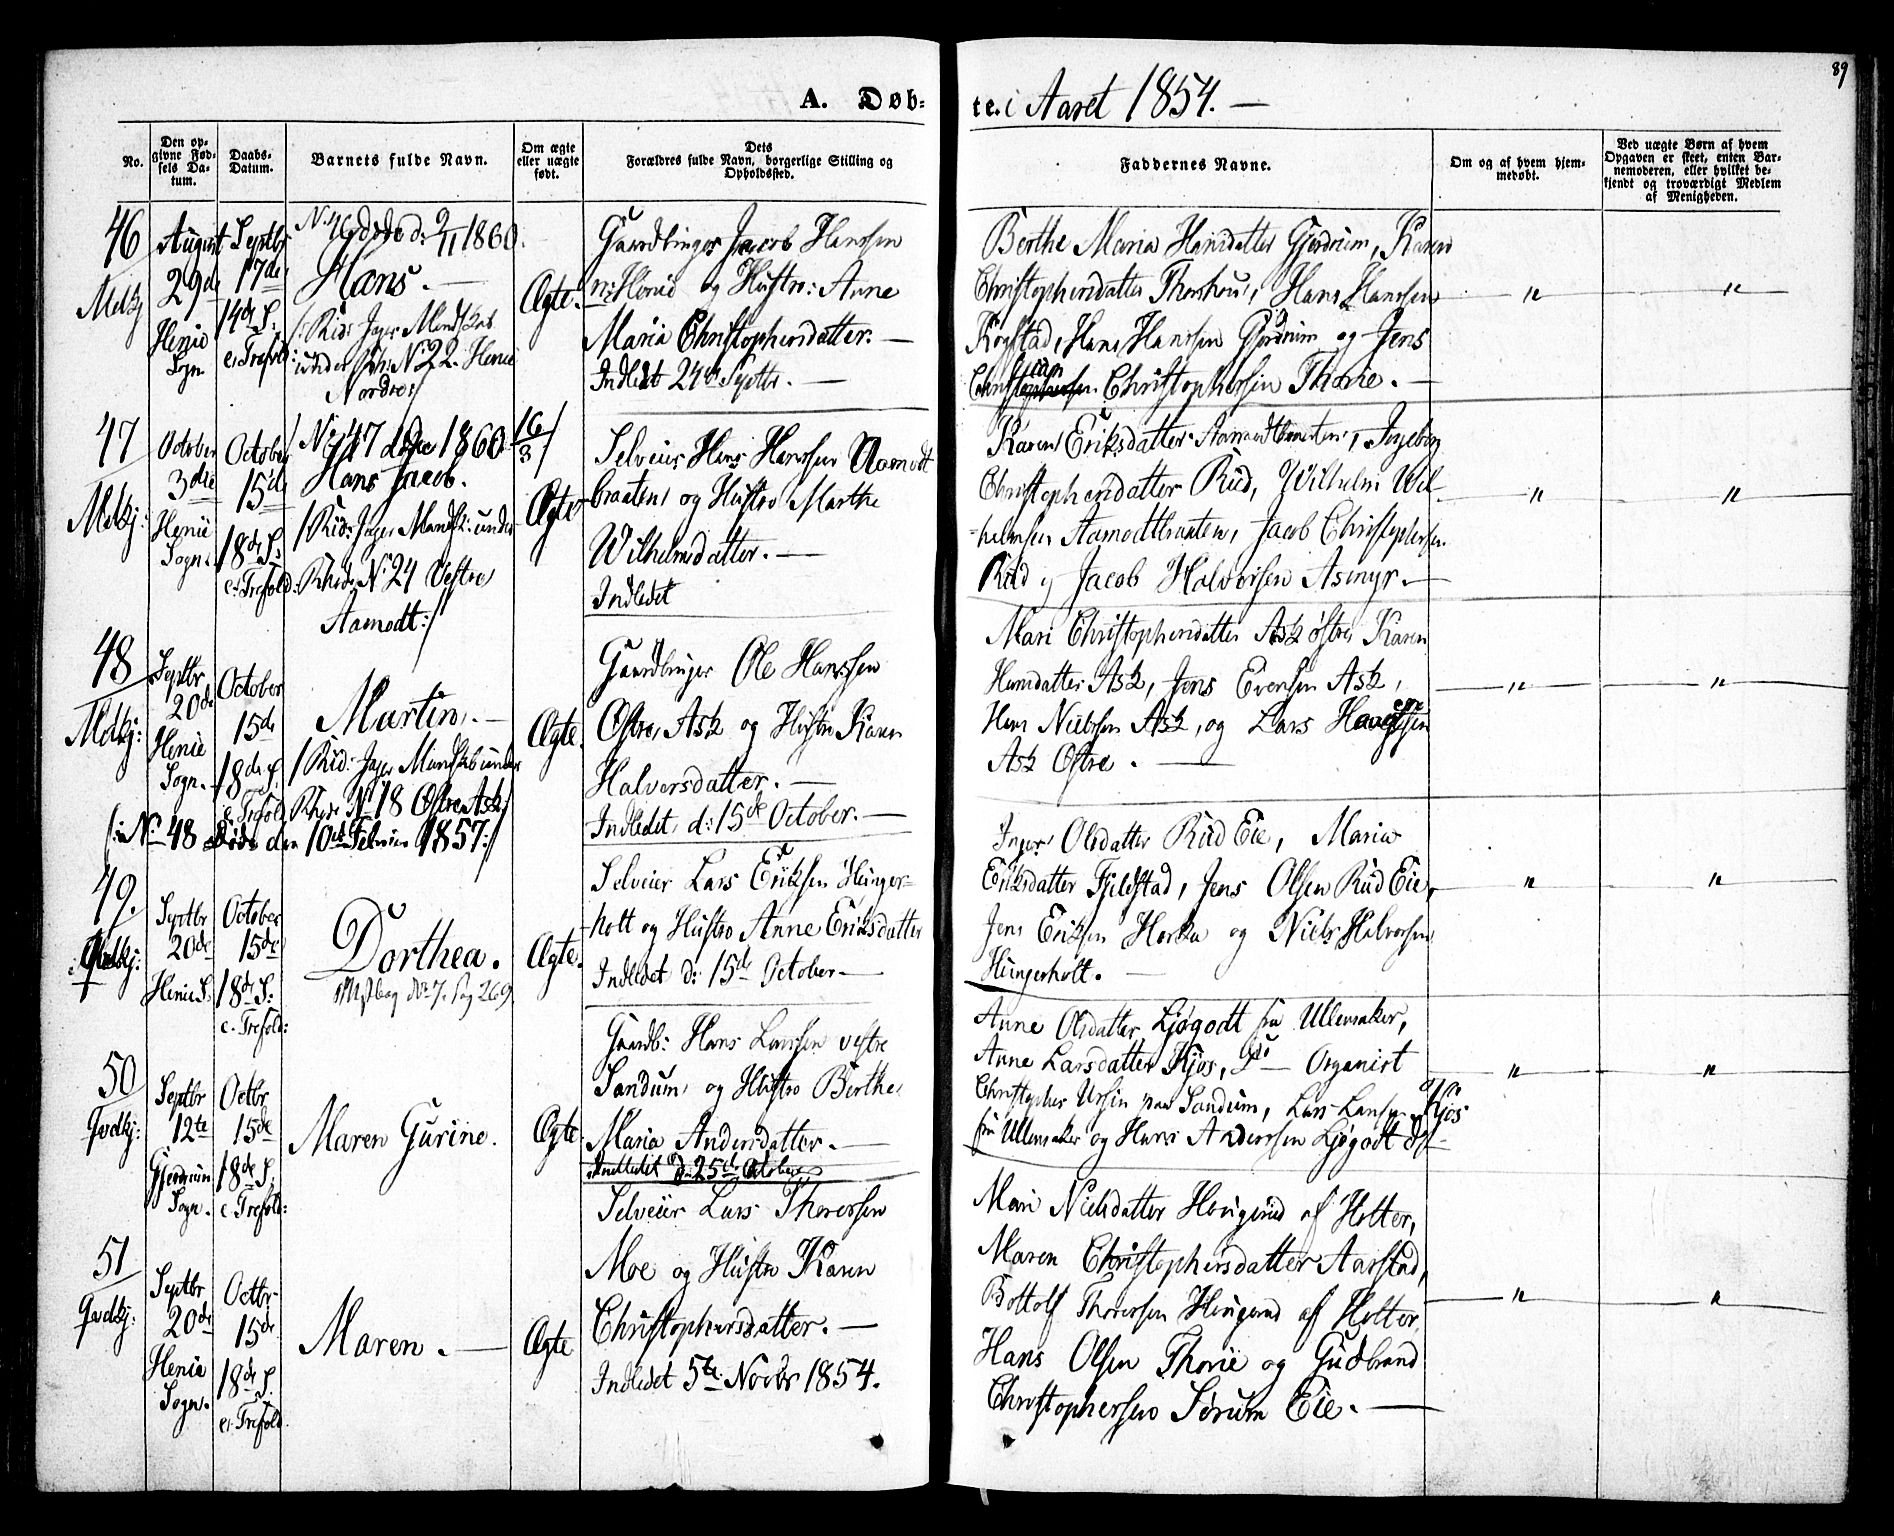 89
A. Døb-
te. i Aaret 1854. —
No.
Den op-
givne Fød-
sels Da-
tum.
Daabs-
Datum.
Barnets fulde Navn.
Om ægte
eller uægte
født.
Dets
Forældres fulde Navn, borgerlige Stilling og
Opholdssted.
Faddernes Navne.
Om og af hvem hjem-
medøbt.
Ved uægte Børn af hvem
Opgaven er skeet, enten Bar-
nemoderen, eller hvilket be-
kjendt og troværdigt Medlem
af Menigheden.
46
August
29de
Henie
Sogn
Septbr
17de
14de S:
e. Trefold:
N: 46 døde d: 9/11 1860.
Hans. —
/: Rid: Jæger Mandskab
under N: 22. Henie
Nordre:/
Ægte.
Gaardbruger Jacob Hanssen
n: Henie og Hustro: Anne
Maria Christophersdatter. —
Indledet 24de Septbr. —
Berthe Maria Hansdatter Gjerdrum, Karen
Christophersdatter, Hans Hanssen
Kogstad, Hans Hanssen Gjerdrum og Jens
Christophersen Thorie. —
"
"
47
October
3die
Henie
Sogn.
October
15de
18de S:
e: Trefold:
/ N: 47 døde 1860 16/3 /
Hans Jacob.
/: Rid: Jæger Mandsk: under
N: 24 Vestre
Aamodt:/
Ægte
Selveier Hans Hanssen Aamodt
braaten og Hustro Marthe
Wilhelmsdatter. —
Indledet
Karen Eriksdatter Aamodtbraaten, Ingeborg
Christophersdatter Rud, Wilhelm Wil-
helmsen Aamodtbraaten, Jacob Christophersen
Rud og Jacob Halvorsen Asmyr. —
"
"
48
Septbr
20de
Henie
Sogn.
October
15de
18de S.
e. Trefold
Martin. —
/: Rid: Jæger Mandskab under
N: 18 Østre Ask/
/: No 48 døde den 10de 1857:/
Ægte.
Gaardbruger Ole Hanssen
Østre Ask og Hustro Karen
Halvorsdatter. —
Indledet d: 15de October. —
Mari Christophersdatter Ask østre, Karen
Hansdatter Ask, Jens Evensen Ask,
Hans Nielssen Ask, og Lars
Ask Østre. —
"
"
49.
Septbr
20de
Henie S:
October
15de
18de S:
e. Trefold:
Dorthea.
No 7. Pag 269
Ægte.
Selveier Lars Eriksen Hunger-
holt og Hustro Anne Eriksdatter
Indledet d: 15de October —
Inger Olsdatter Rud Eie, Maria
Eriksdatter Fjeldstad, Jens Olsen Rud Eie,
Jens Eriksen og Niels Halvorsen
Hungerholt. —
"
"
50
Godkj:
Septbr
12te
Gjerdrum
Sogn.
Octbr
15de
18de S.
e. Trefold:
Maren Gurine.
Ægte.
Gaardb: Hans Larssen vestre
Sandum og Hustro Berthe
Maria Andersdatter. —
Indledet d: 25de October
Anne Olsdatter Ljøgodt fra Ullensaker,
Anne Larsdatter Kjos, Do — Organist
Christopher Ursin paa Sandum, Lars Larssen Kjos
fra Ullensaker og Hans Anderssen Ljøgodt Do —
"
"
51
Godkj:
Septbr
20de
Henie
Sogn.
Octbr
15de
18de S.
e. Trefold.
Maren. —
Ægte
Selveier Lars Thoressen
Moe og Hustro Karen
Christophersdatter. —
Indledet 5te Novbr 1854.
Mari Nielsdatter af Holter,
Maren Christophersdatter Aarstad,
Bottolf Thoressen af Holter,
Hans Olsen Thorie og Gudbrand
Christophersen Sørum Eie. —
"
"